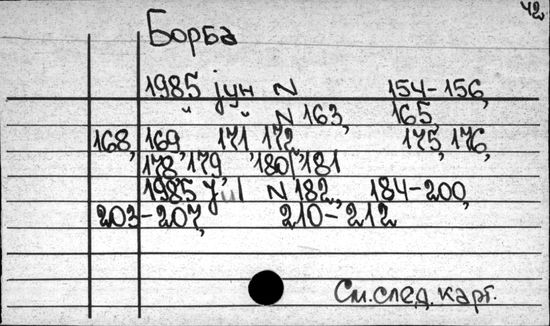 42
Борба
1985 јун N 154-156,
" " N 163, 165,
168, 169, 171, 172, 175, 176,
178, 179, 180, 181
1985 N 182, 184-200,
203-207, 210-212
См. след. карт.